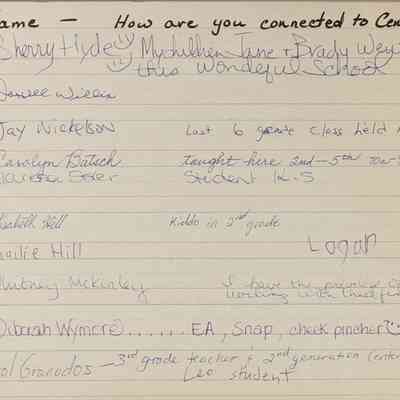 ame - How are you connected to Cen
Sherry Hyde My children Jane + Brady Wey
this wonderful School
Willis
Jay Nickelson Last 6 grade class held
Carolyn Batsch taught here 2nd-5th
Student K-5
Hill Kiddo in 2nd grade
ailie Hill Logan
hitney McKinley I have the
working with
Deborah Wymore...... EA, Snap, check pincher
ol Granados - 3rd grade teacher & 2nd generation
Leo student